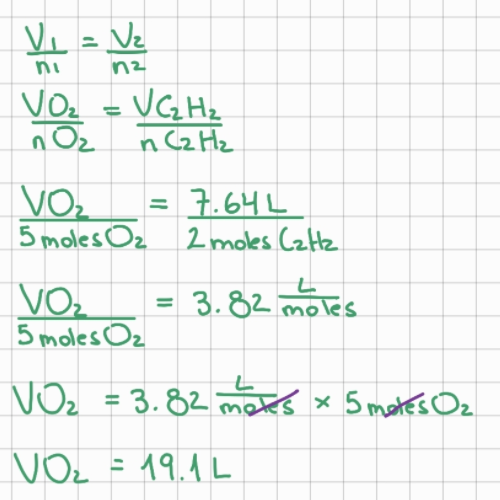 V₁/n₁ = V₂/n₂
VO₂/nO₂ = VC₂H₂/nC₂H₂
VO₂/5 moles O₂ = 7.64 L/2 moles C₂H₂
VO₂/5 moles O₂ = 3.82 L/moles
VO₂ = 3.82 L/moles × 5 moles O₂
VO₂ = 19.1 L